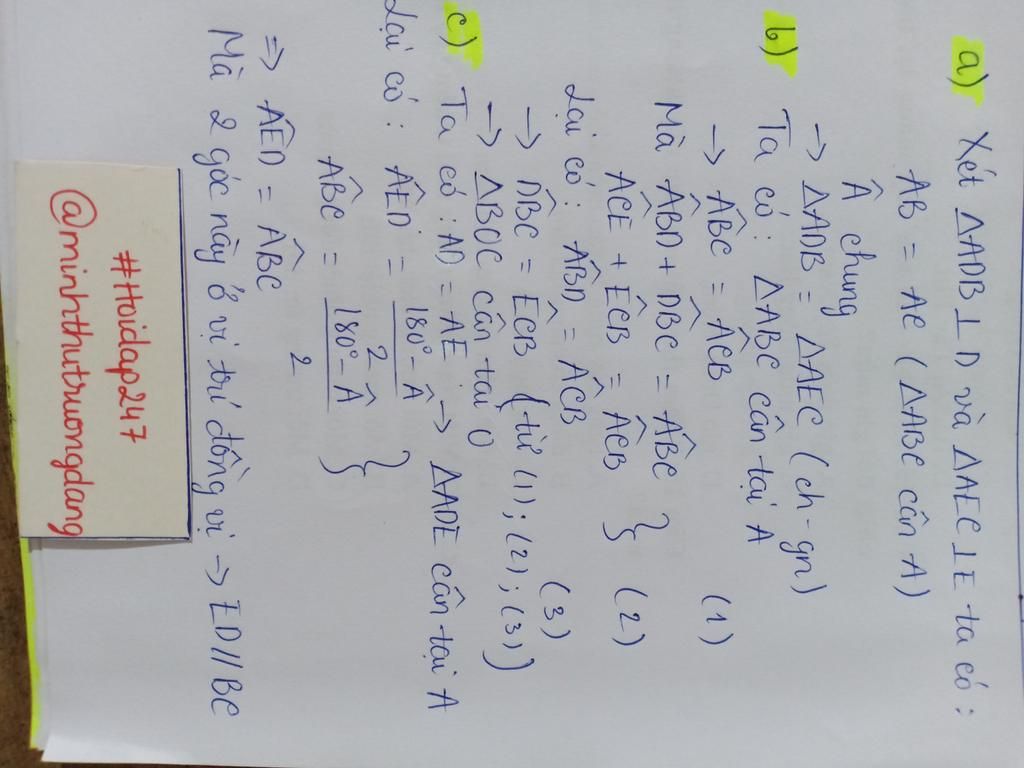 a) Xét ΔADB ⊥ D và ΔAEC ⊥ E ta có:
AB = AC (ΔABC cân A)
Â chung
→ ΔADB = ΔAEC (ch-gn)
b) Ta có: ΔABC cân tại A
→ AB̂C = AĈB (1)
Mà AB̂D + DB̂C = AB̂C }
AĈE + EĈB = AĈB } (2)
Lại có: AB̂D = AĈB (3)
→ DB̂C = EĈB (từ (1); (2); (3))
→ ΔBOC cân tại O
c) Ta có: AD = AE → ΔADE cân tại A
Lại có: AÊD = (180° - Â)/2 }
AB̂C = (180° - Â)/2 }
=> AÊD = AB̂C
Mà 2 góc này ở vị trí đồng vị → ED//BC
#Hoidap247
@minhthutruongdang